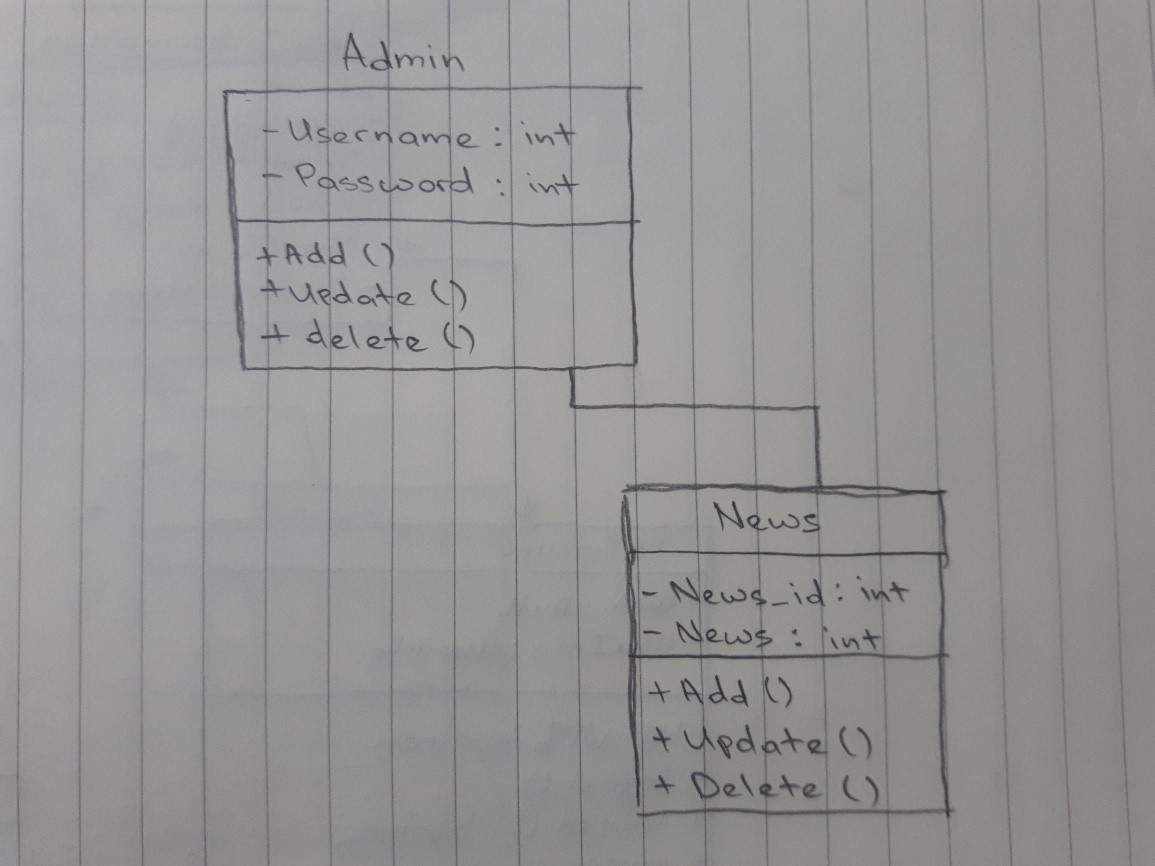 Admin
- Username : int
- Password : int
+ Add ()
+ Update ()
+ delete ()
News
- News_id : int
- News : int
+ Add ()
+ Update ()
+ Delete ()